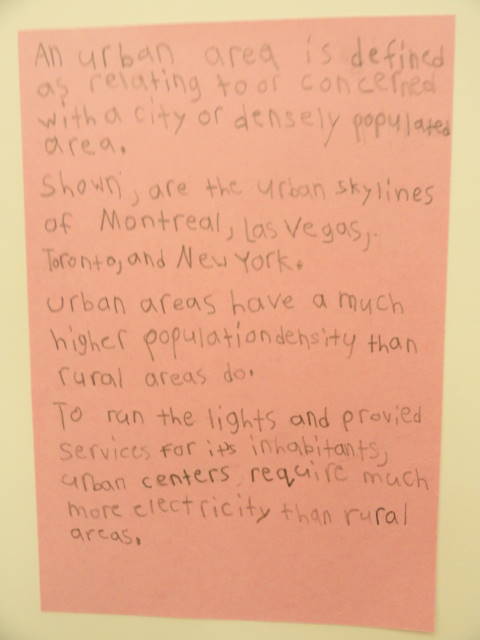 An urban area is defined
as relating to or concerred
with a city or densely populated
area.
Shown, are the urban skylines
of Montreal, Las Vegas,
Toronto, and New York.
urban areas have a much
higher population density than
rural areas do.
To run the lights and provied
services for its inhabitants,
urban centers require much
more electricity than rural
areas.